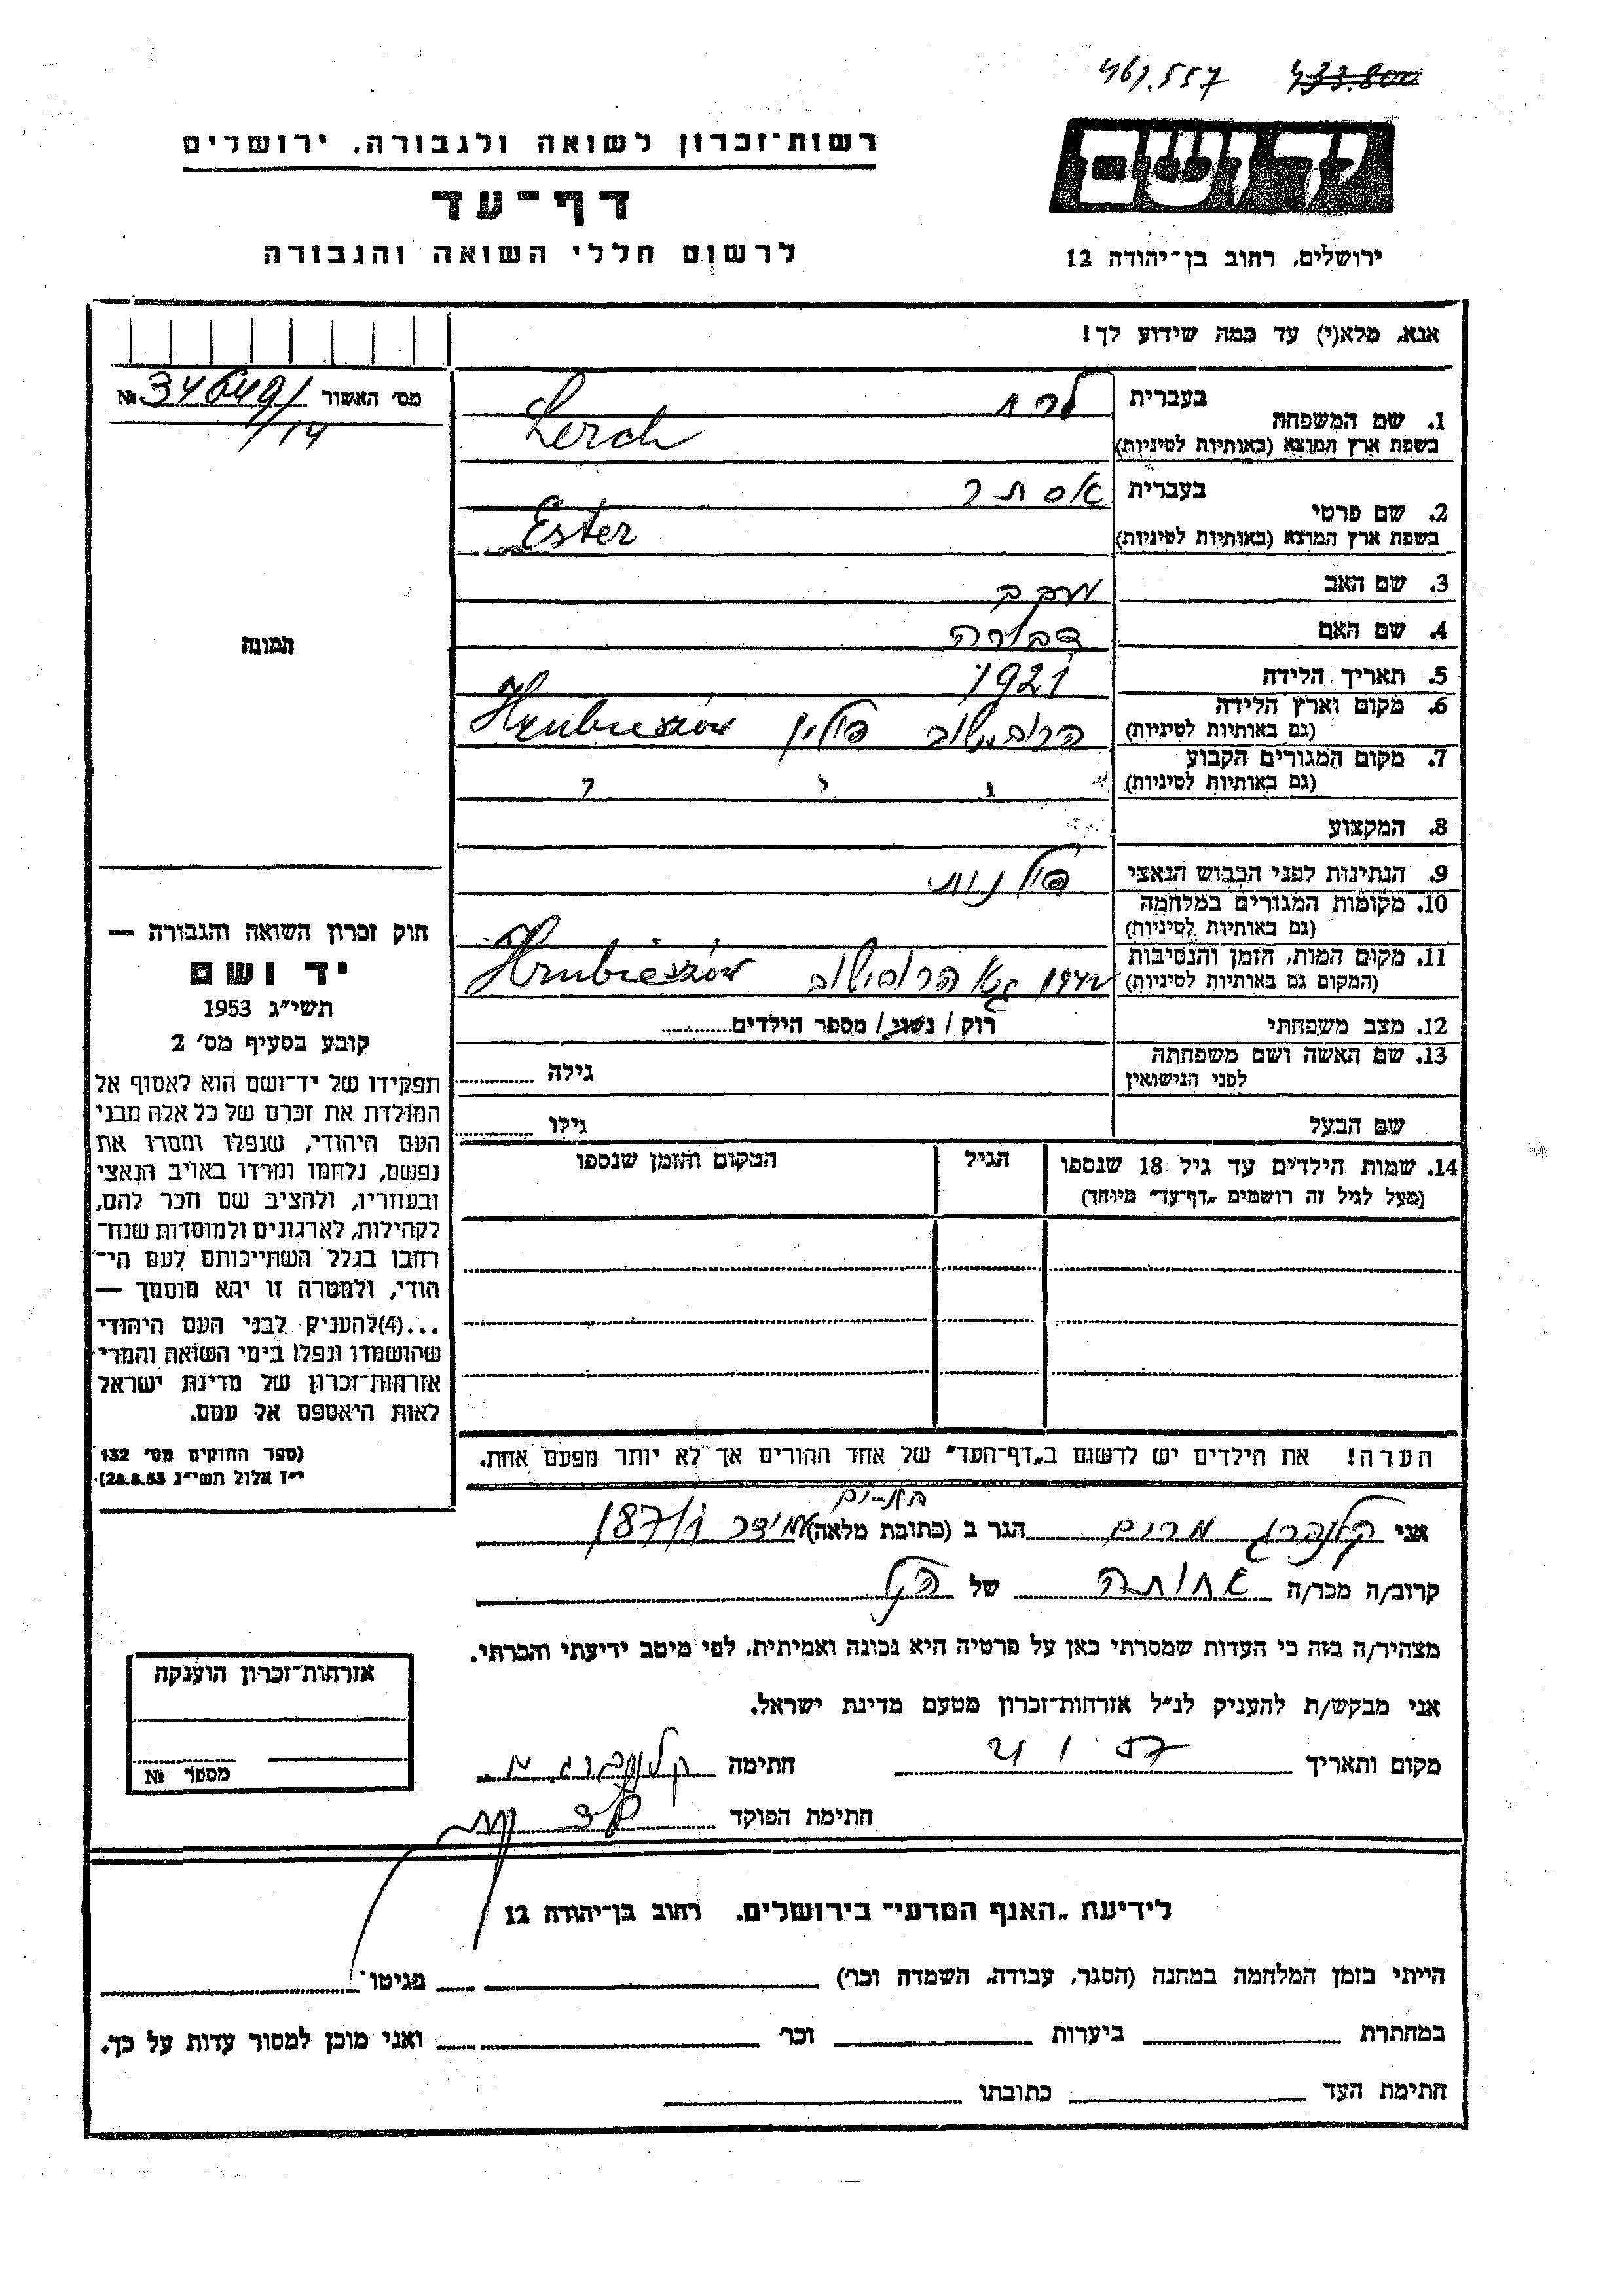 461.557 433.800
רשות־זכרון לשואה ולגבורה, ירושלים
ידושם
דף־עד
לרשום חללי השואה והגבורה
ירושלים, רחוב בן־יהודה 12
אנא, מלא(י) עד כמה שידוע לך!
מס׳ האשור № 34649/14
1. שם המשפחה
בעברית לרח
בשפת ארץ המוצא (באותיות לטיניות) Lerch
2. שם פרטי
בעברית אסתר
בשפת ארץ המוצא (באותיות לטיניות) Ester
3. שם האב יעקב
4. שם האם דבורה
5. תאריך הלידה 1921
6. מקום וארץ הלידה (גם באותיות לטיניות) הרובישוב פולין Hrubieszów
7. מקום המגורים הקבוע (גם באותיות לטיניות)
8. המקצוע
9. הנתינות לפני הכבוש הנאצי פולנית
10. מקומות המגורים במלחמה (גם באותיות לטיניות)
11. מקום המות, הזמן והנסיבות (המקום גם באותיות לטיניות) הרובישוב Hrubieszów
12. מצב משפחתי רוק / נשוי / מספר הילדים
13. שם האשה ושם משפחתה לפני הנישואין גילה
שם הבעל גילו
14. שמות הילדים עד גיל 18 שנספו הגיל המקום והזמן שנספו
(מעל לגיל זה רושמים „דף־עד״ מיוחד)
תמונה
חוק זכרון השואה והגבורה —
יד ושם
תשי״ג 1953
קובע בסעיף מס׳ 2
תפקידו של יד־ושם הוא לאסוף אל
המולדת את זכרם של כל אלה מבני
העם היהודי, שנפלו ומסרו את
נפשם, נלחמו ומרדו באויב הנאצי
ובעוזריו, ולהציב שם וזכר להם,
לקהילות, לארגונים ולמוסדות שנח־
רבו בגלל השתייכותם לעם הי־
הודי, ולמטרה זו יהא מוסמך —
...(4) להעניק לבני העם היהודי
שהושמדו ונפלו בימי השואה והמרי
אזרחות־זכרון של מדינת ישראל
לאות היאספם אל עמם.
(ספר החוקים מס׳ 132
י״ז אלול תשי״ג 28.8.53)
הערה! את הילדים יש לרשום ב„דף־העד״ של אחד ההורים אך לא יותר מפעם אחת.
אני קלנברג מרים הגר ב (כתובת מלאה) עמידר 187/1
קרוב/ה מכר/ה אחותה של הנ״ל
מצהיר/ה בזה כי העדות שמסרתי כאן על פרטיה היא נכונה ואמיתית, לפי מיטב ידיעתי והכרתי.
אני מבקש/ת להעניק לנ״ל אזרחות־זכרון מטעם מדינת ישראל.
מקום ותאריך 21 1 57 חתימה
חתימת הפוקד
אזרחות־זכרון הוענקה
מספר №
לידיעת „האגף המדעי״ בירושלים, רחוב בן־יהודה 12
הייתי בזמן המלחמה במחנה (הסגר, עבודה, השמדה וכו׳) בגיטו
במחתרת ביערות וכו׳ ואני מוכן למסור עדות על כך.
חתימת העד כתובתו